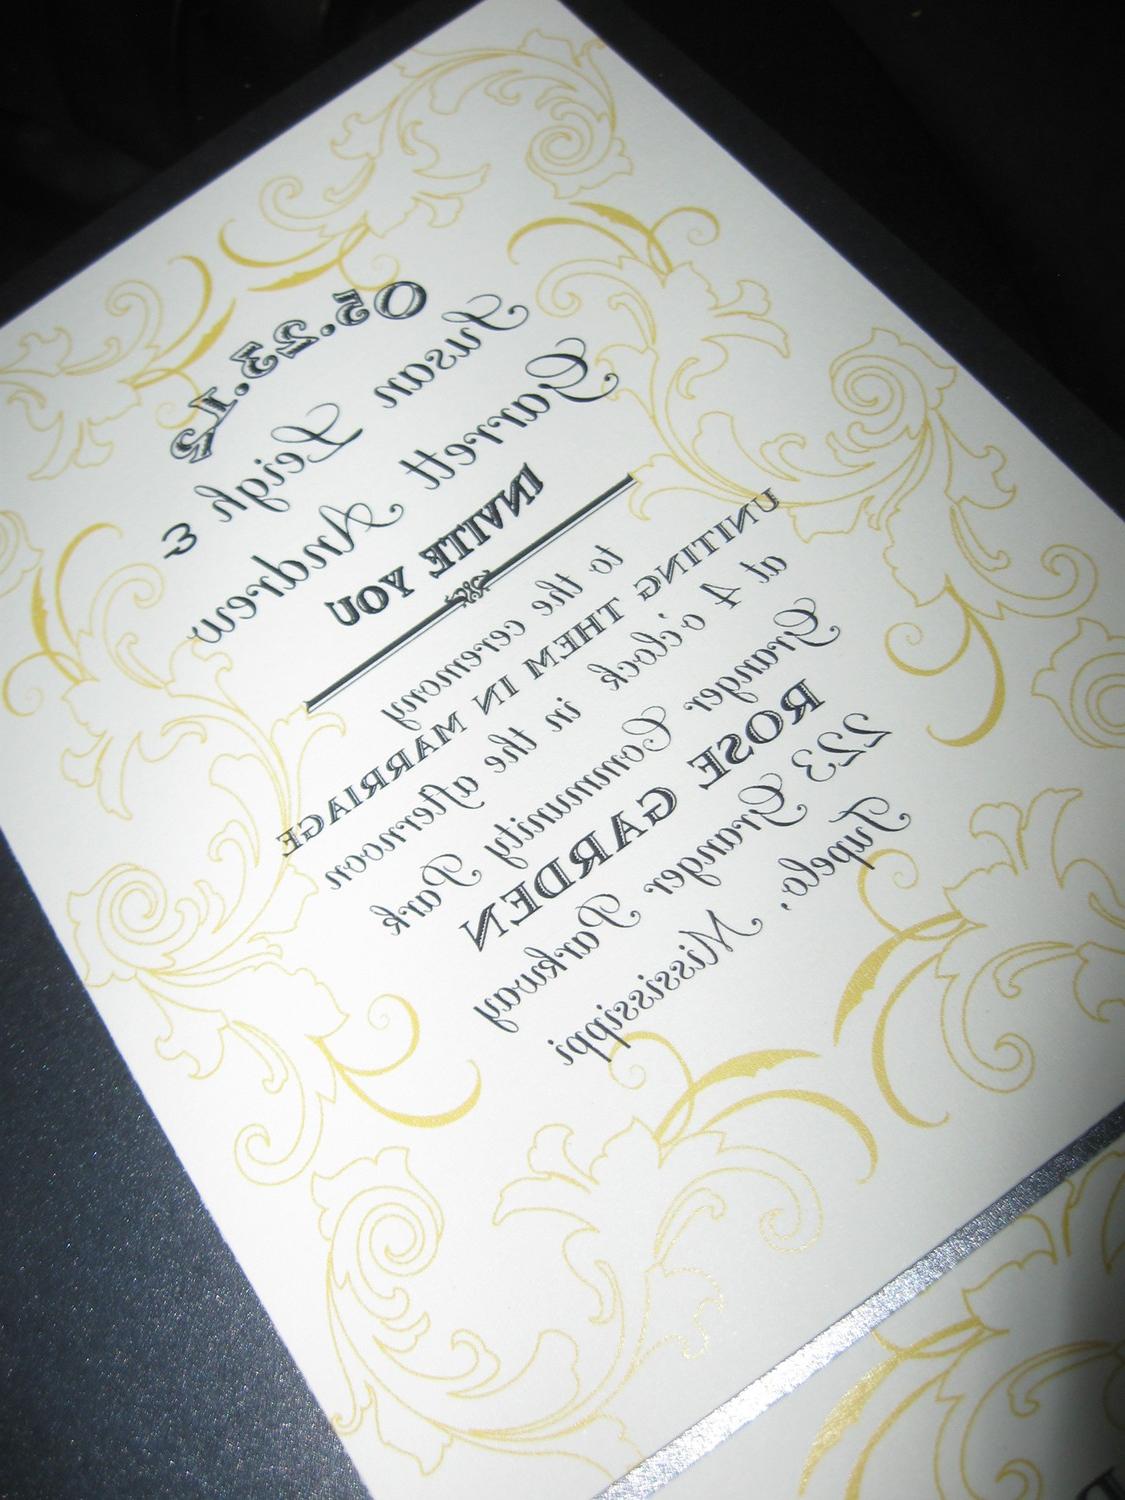 05.23.12
Susan Leigh &
Garrett Andrew
INVITE YOU
to the ceremony
UNITING THEM IN MARRIAGE
at 4 o'clock in the afternoon
Granger Community Park
ROSE GARDEN
223 Granger Parkway
Tupelo, Mississippi